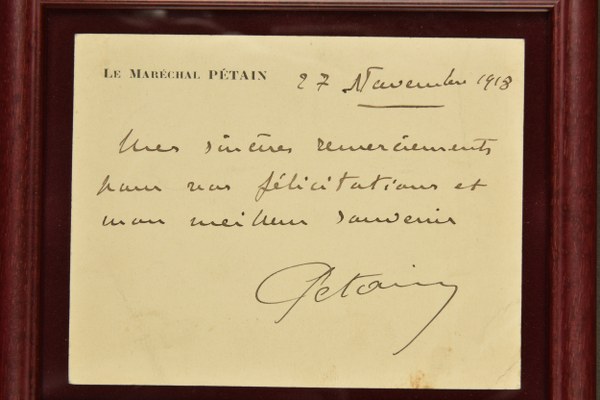 LE MARÉCHAL PÉTAIN 27 Novembre 1918
Mes sincères remerciements
pour vos félicitations et
mon meilleur souvenir
Pétain